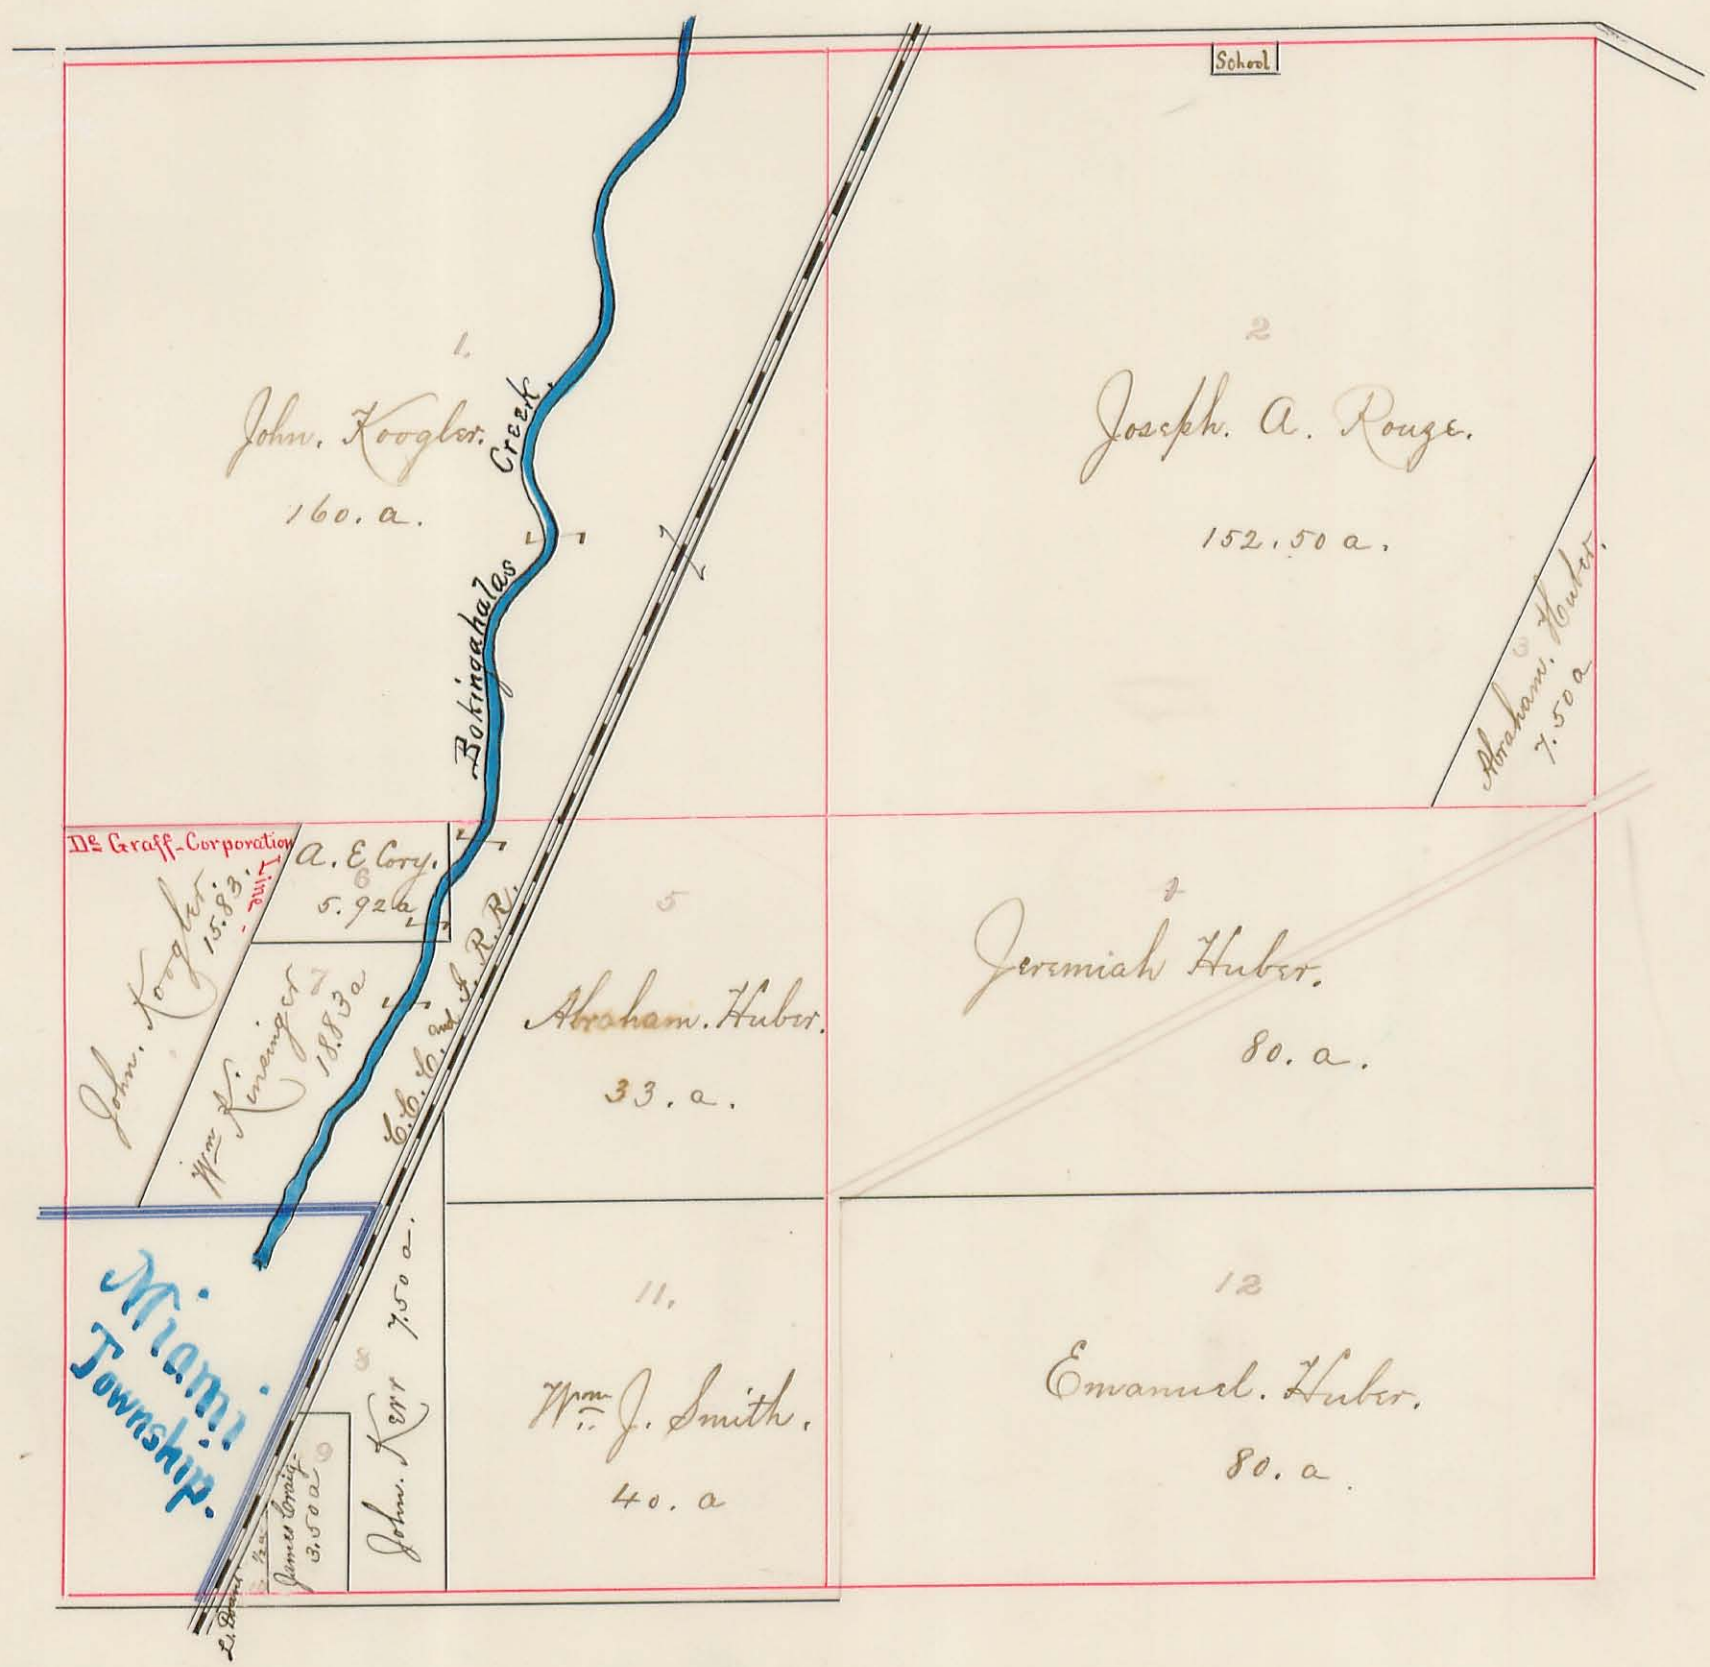 School
1.
John. Koogler.
160. a.
Creek.
Bokingahalas
2
Joseph. A. Rouze.
152.50 a.
3
Abraham. Huber.
7.50 a
De Graff-Corporation
Line-
John. Koogler.
15.83.
A. E Cory.
6
5.92a
7
Wm K. Kinsinger
18.83a
C. C. C. and I. R. R.
5
Abraham. Huber.
33. a.
Jeremiah Huber.
80. a.
Miami
Township.
8
John. Kerr 7.50 a.
9
James Craig.
3.50 a
½ a
11.
Wm J. Smith.
40. a
12
Emanuel. Huber.
80. a.